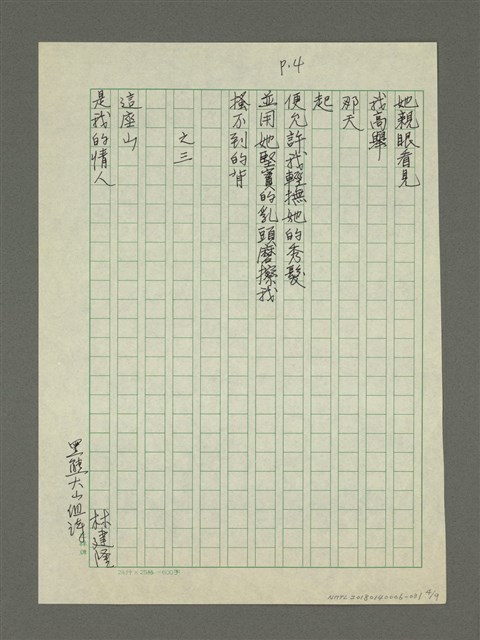 P.4
她親眼看見
我高舉
那天
起
便允許我輕撫她的秀髮
並用她堅實的乳頭磨擦我
搔不到的背
之三
這座山
是我的情人
林建隆
黑熊大山組詩
24×25=600
NMTL20180140006-001 4/9